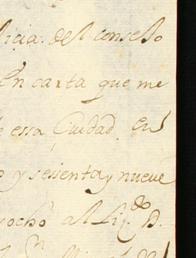 licia del consello
En carta que me
essa Ciudad en
o y sessenta y nueve
ocho al Liz.do D.